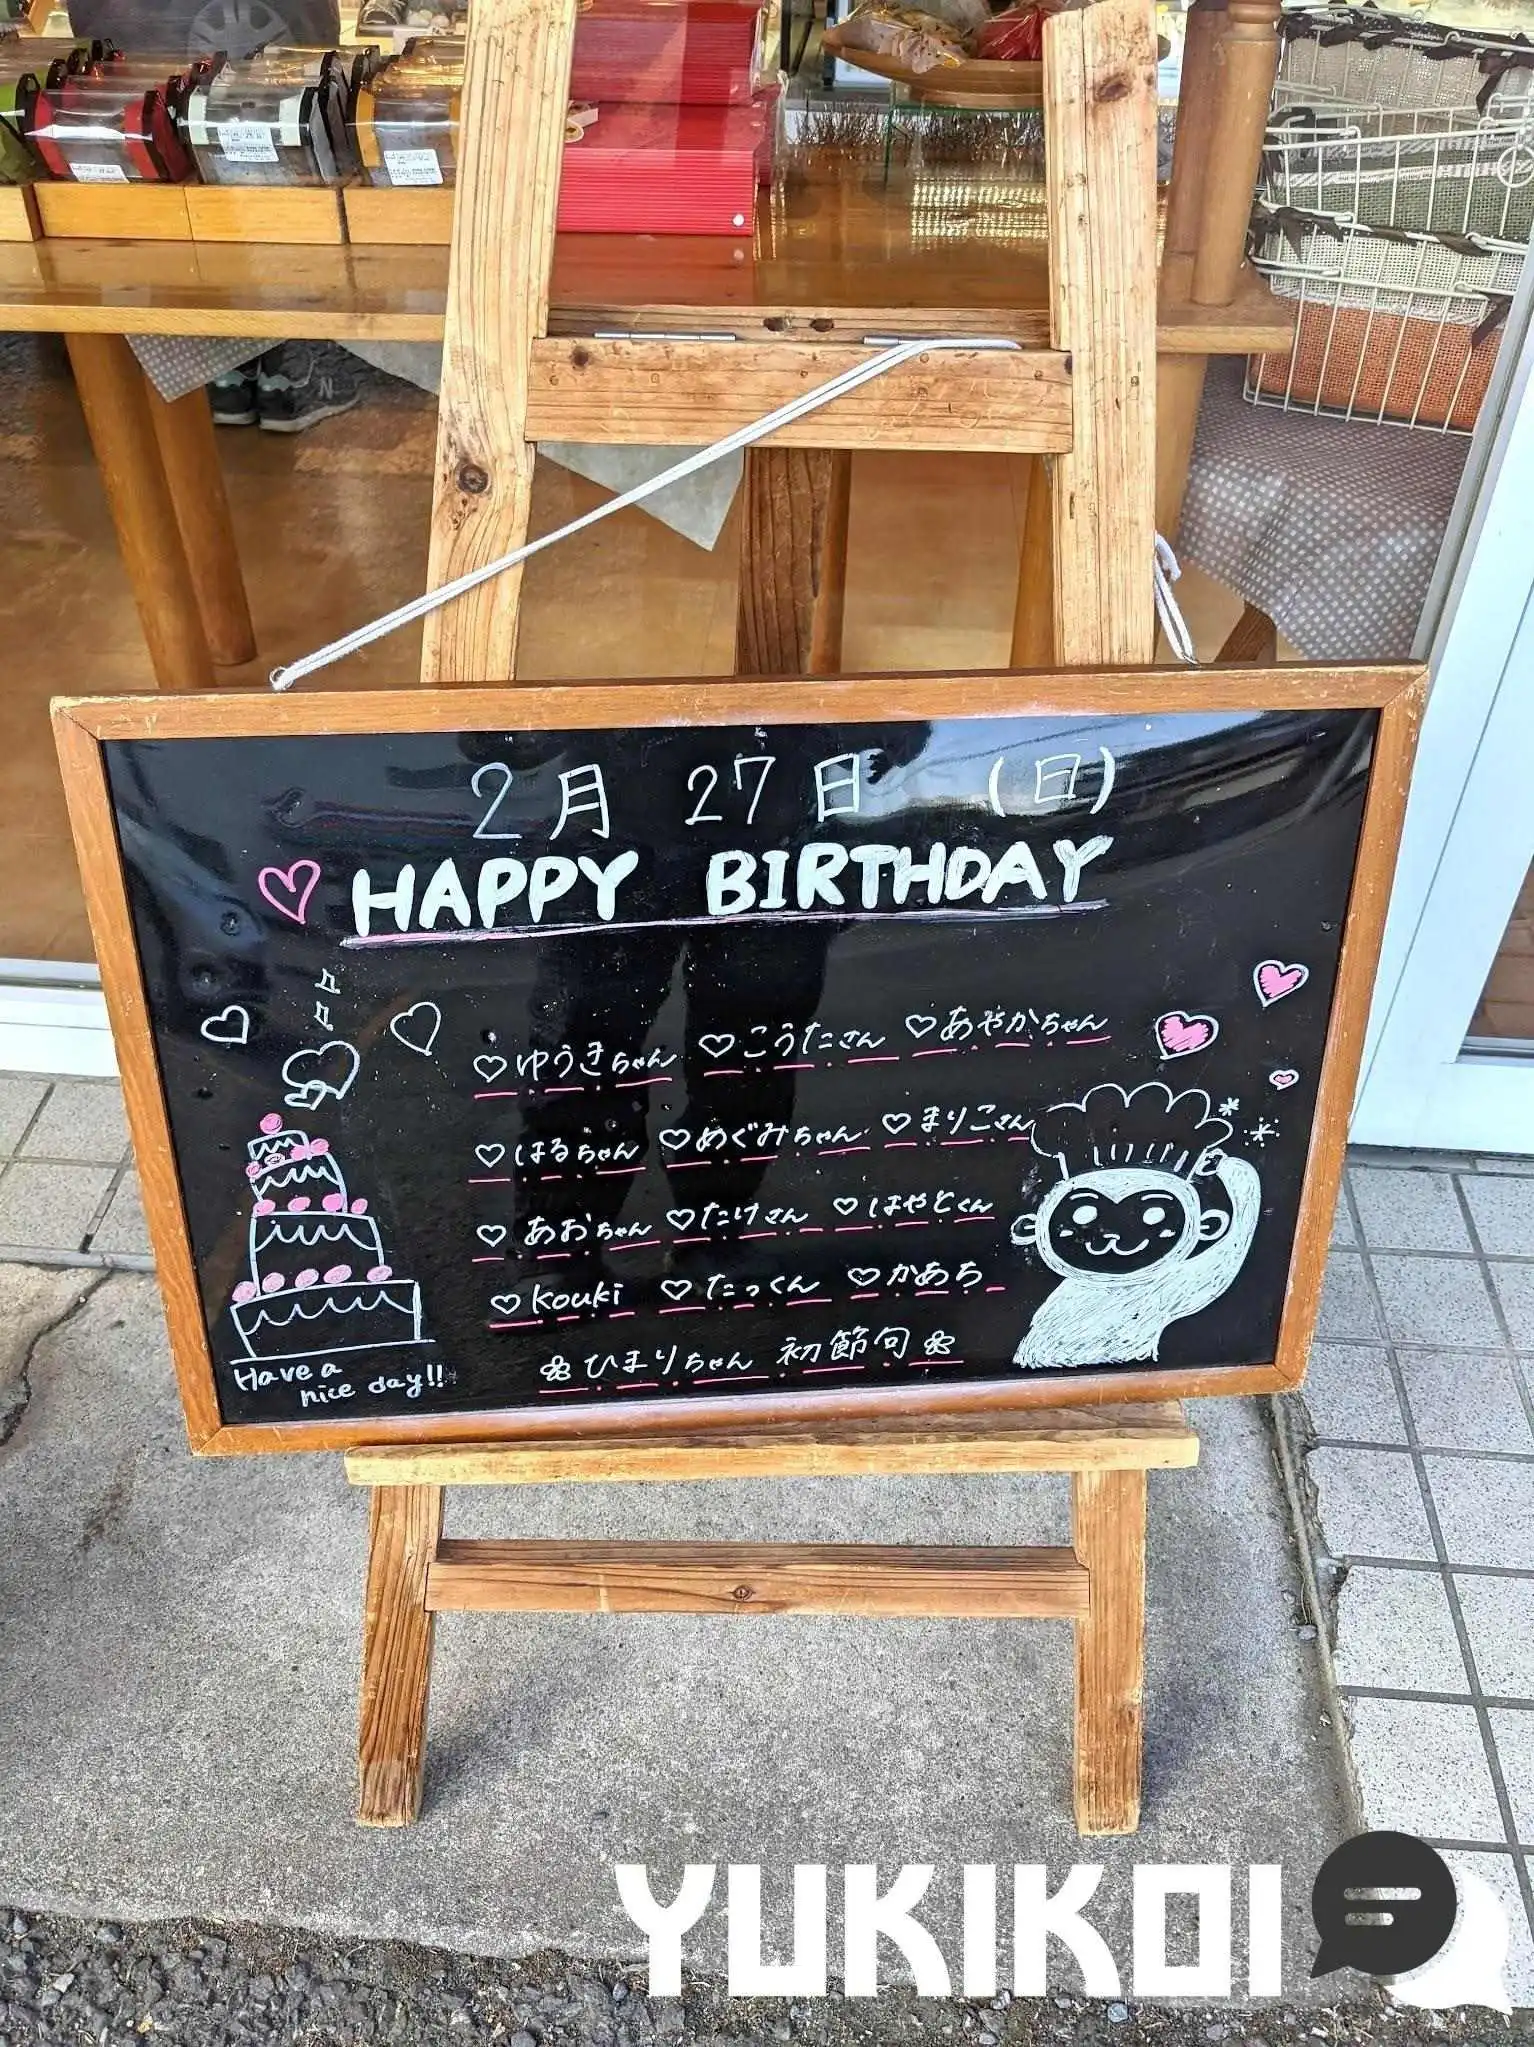 2月 27日 (日)
HAPPY BIRTHDAY
♡ゆうきちゃん ♡こうたさん ♡あやかちゃん
♡はるちゃん ♡めぐみちゃん ♡まりこさん
♡あおちゃん ♡たけさん ♡はやとくん
♡kouki ♡たっくん ♡かあち
ひまりちゃん 初節句
Have a
nice day!!
YUKIKOI